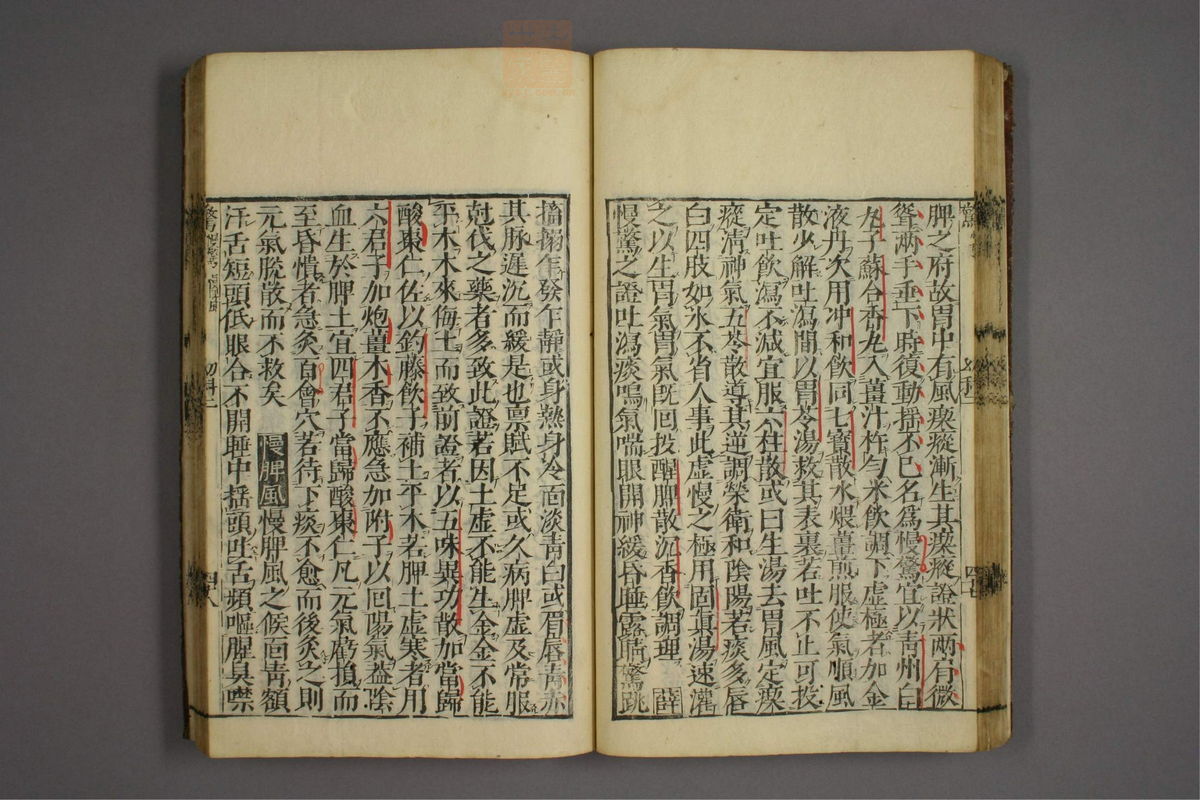 脾之府故胃中有風瘈瘲漸生其瘈瘲證狀兩肩微
聳兩手垂下時復動搖不已名爲慢驚宜以青州白
丸子蘇合香丸入薑汁杵勻米飲調下虛極者加金
液丹次用冲和飲同七寶散水煨薑煎服使氣順風
散少解吐瀉間以胃苓湯救其表裏若吐不止可投
定吐飲瀉不減宜服六柱散或日生湯去胃風定瘈
瘲清神氣五苓散導其逆調榮衛和陰陽若痰多唇
白四肢如氷不省人事此虛慢之極用固眞湯速灌
之以生胃氣胃氣既回投醒脾散沉香飲調理 薛
慢驚之證吐瀉痰鳴氣喘眼開神緩昏睡露睛驚跳
搐搦乍發乍靜或身熱身冷面淡青白或眉唇青赤
其脉遲沉而緩是也禀賦不足或久病脾虛及常服
尅伐之藥者多致此證若因土虛不能生金金不能
平木木來侮土而致前證者以五味異功散加當歸
酸棗仁佐以釣藤飲子補土平木若脾土虛寒者用
六君子加炮薑木香不應急加附子以回陽氣蓋陰
血生於脾土宜四君子當歸酸棗仁凡元氣虧損而
至昏憒者急灸百會穴若待下痰不愈而後灸之則
元氣脫散而不救矣 慢脾風 慢脾風之候面青額
汗舌短頭低眼合不開睡中搖頭吐舌頻嘔腥臭噤